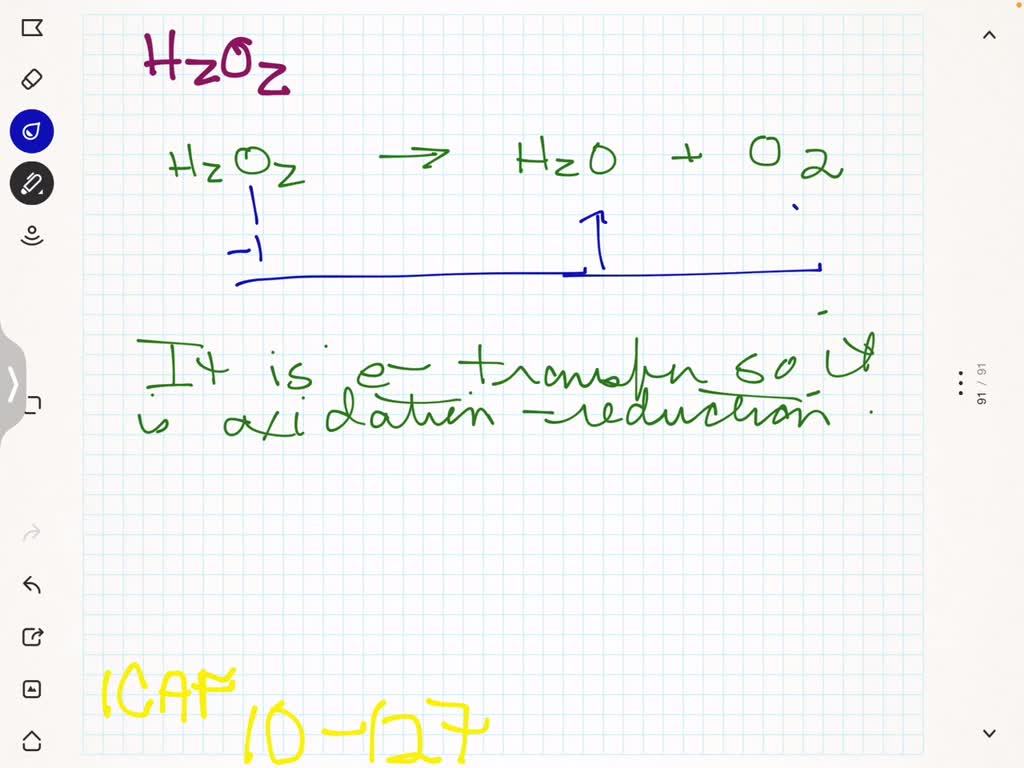 H2O2
H2O2 → H2O + O2
-1
It is e- transfer so it
is oxidation-reduction.
1CAF
10-127
91 / 91